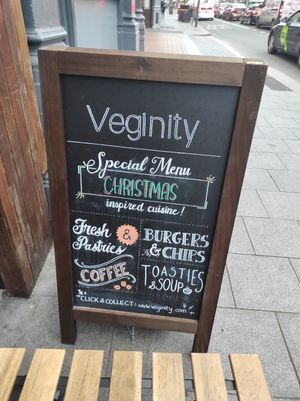 VegInity
Special Menu
CHRISTMAS
inspired cuisine!
Fresh &
Pastries
COFFEE
BURGERS
& CHIPS
TOASTIES
& SOUP
CLICK & COLLECT: www.veginity.com